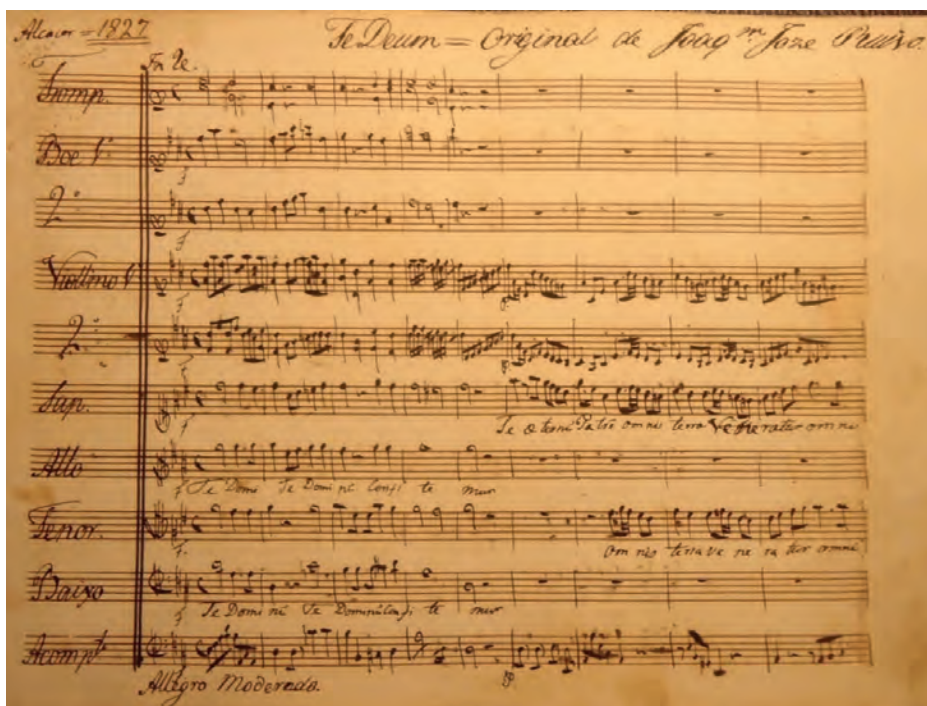 Alcacer = 1827
Te Deum = Original de Joaq.m Joze
In Re.
Tromp.
Boe 1.º
2.º
Violino 1.º
2.º
Sup.
Te æterni Patrē omnis terra Veneratur omnis
Alto
Te Domi Te Domi ni Confi te mur
Tenor.
om nis terra ve ne ra tur omnis
Baixo
Te Domi ni Te Domini Confi te mur
Acompt.º
Allegro Moderado.